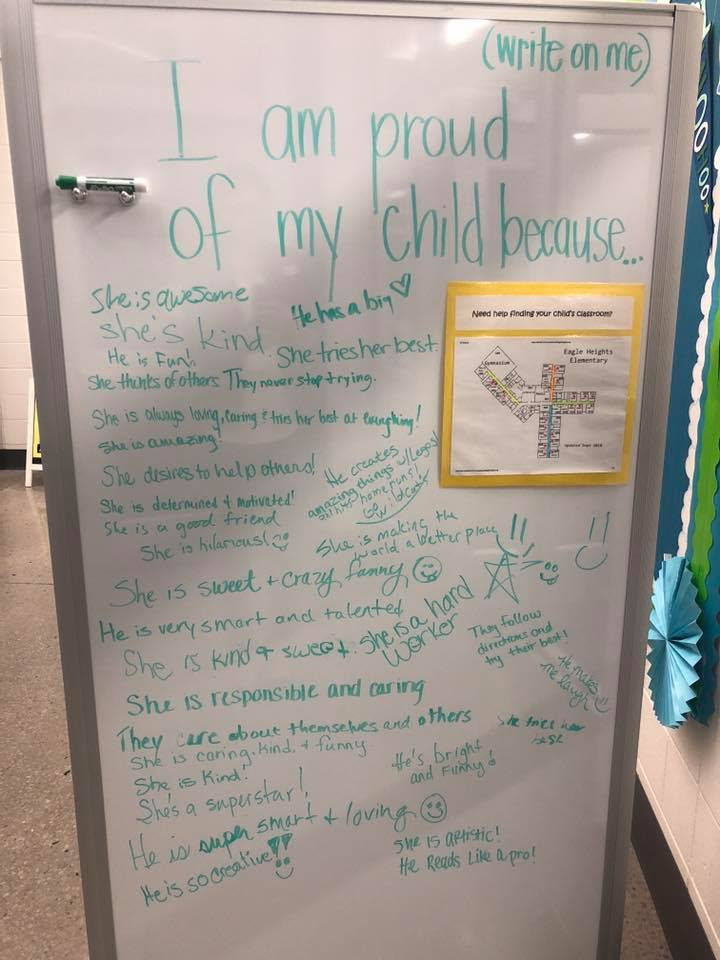 (write on me)
I am proud
of my child because...
She is awesome
He has a big ♡
she's kind.
She tries her best.
He is Fun!
She thinks of others
They never stop trying.
She is always loving, caring & tries her best at everything!
She is amazing!
She desires to help others!
He creates
amazing things w/ Legos!
home runs!
She is determined & motivated!
She is a good friend
She is hilarious!
She is making the
world a better place
She is sweet + crazy funny
He is very smart and talented
She is a hard
worker
She is kind & sweet.
They follow
directions and
try their best!
He makes
me laugh
She is responsible and caring
They care about themselves and others
She tries her
best
She is caring, kind, & funny
She is Kind!
He's bright
and Funny!
She's a superstar!
He is super smart & loving
He is so creative!!
She is Artistic!
He Reads Like a pro!
Need help finding your child's classroom?
Eagle Heights
Elementary
Gymnasium